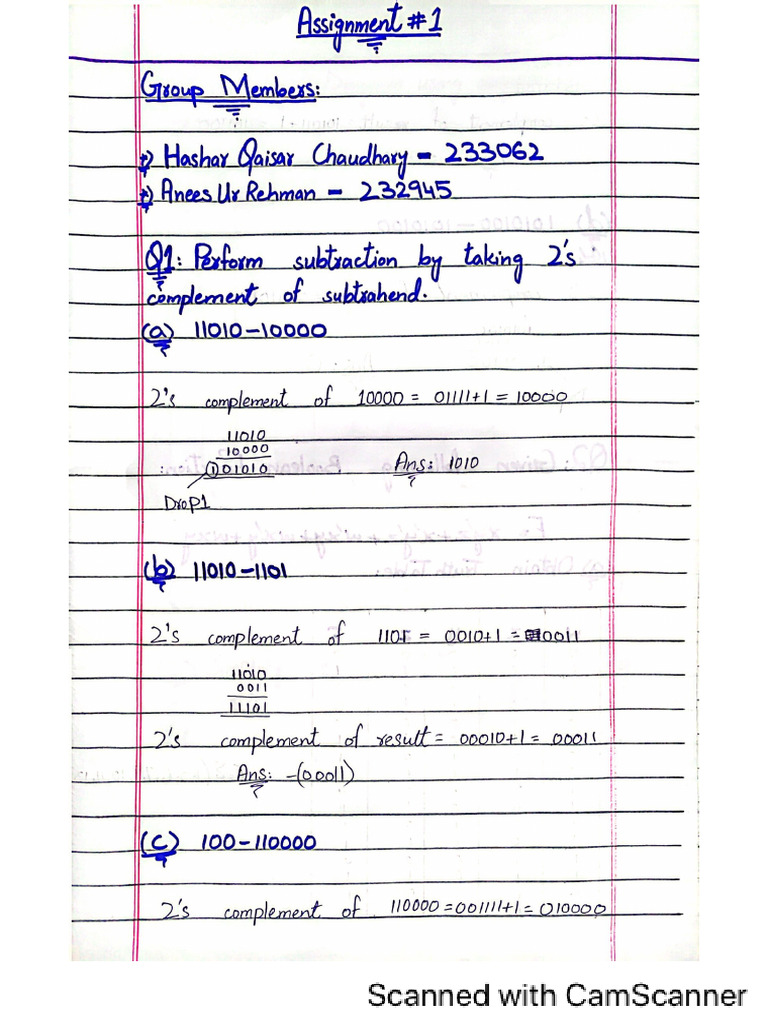 Assignment #1
Group Members:
Hashar Qaisar Chaudhary - 233062
Anees Ur Rehman - 232945
Q1: Perform subtraction by taking 2's
complement of subtrahend.
(a) 11010-10000
2's complement of 10000 = 01111+1 = 10000
11010
10000
①01010 Ans: 1010
Drop1
(b) 11010-1101
2's complement of 1101 = 0010+1 = 0011
11010
0011
11101
2's complement of result = 00010+1 = 00011
Ans: -(00011)
(c) 100-110000
2's complement of 110000=001111+1=010000
Scanned with CamScanner